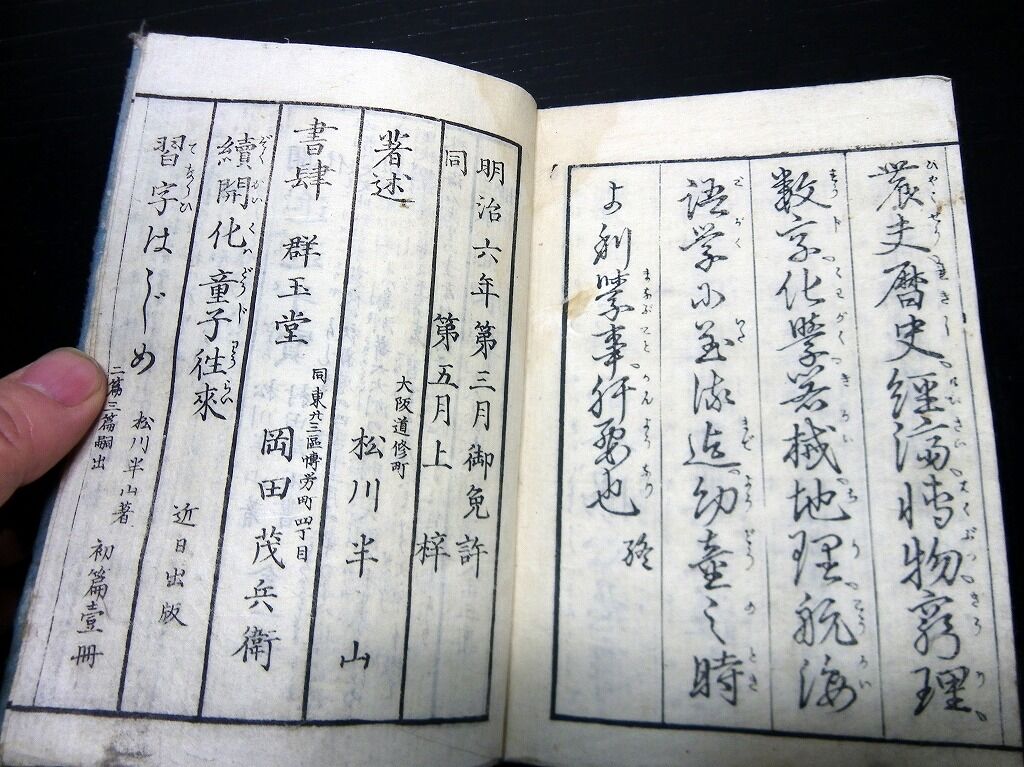 農夫暦史、經済、博物、窮理、
数字、化學、器械、地理、航海、
語学に至る迄、幼童之時
より學事、肝要也 終
明治六年第三月御免許
同 第五月上梓
大阪道修町
著述 松川半山
同東九三區博労町四丁目
書肆 群玉堂 岡田茂兵衛
續開化童子徃來 近日出版
習字はじめ 松川半山著 初篇壹冊
二篇三篇嗣出